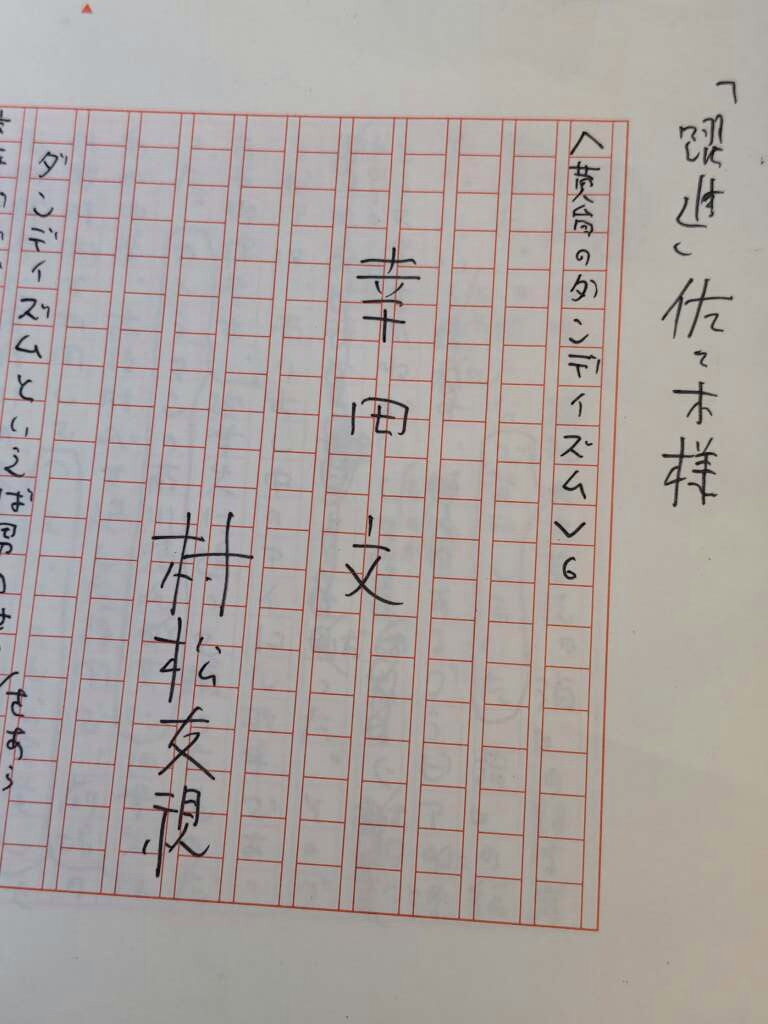 「躍進」佐々木様
＜黄昏のダンディズム＞6
幸田文
村松友視
ダンディズムといえば男の